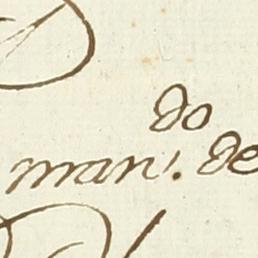 do
man. de